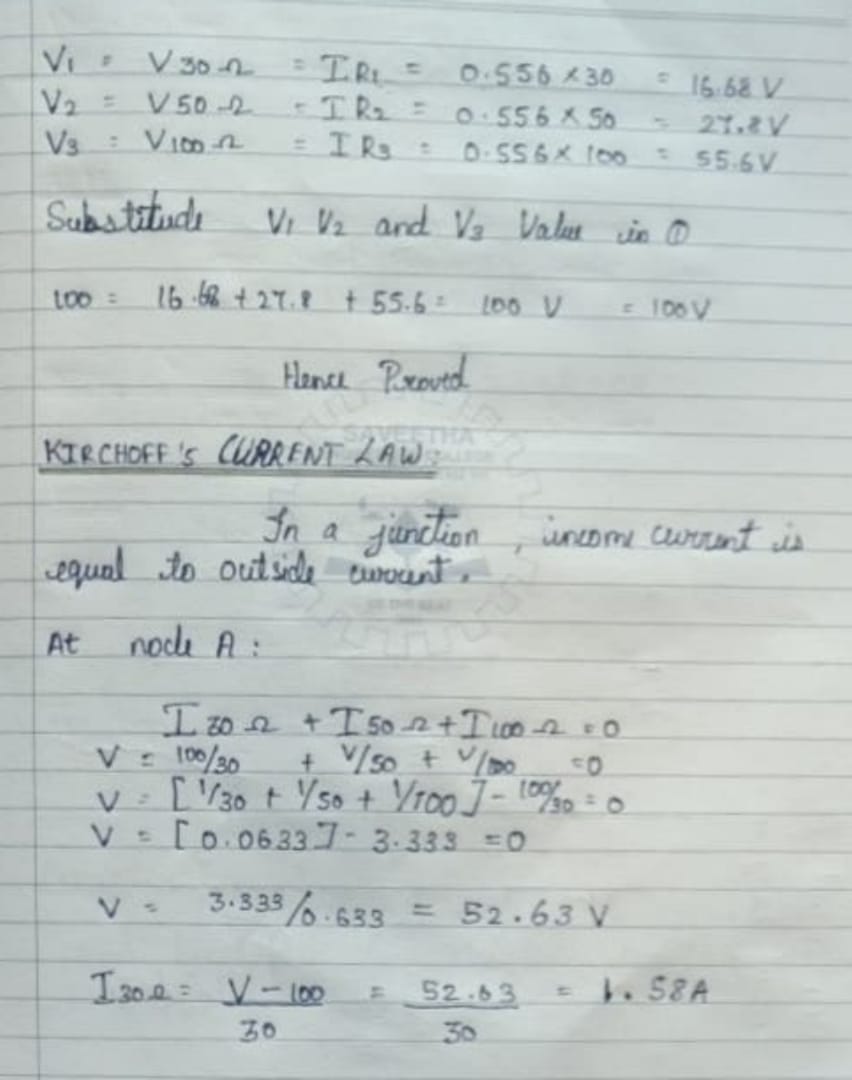 V1 = V30Ω = IR1 = 0.556 × 30 = 16.68 V
V2 = V50Ω = IR2 = 0.556 × 50 = 27.8V
V3 = V100Ω = IR3 = 0.556 × 100 = 55.6V
Substitude V1 V2 and V3 Value in ①
100 = 16.68 + 27.8 + 55.6 = 100 V = 100V
Hence Proved
SAVEETHA
KIRCHOFF'S CURRENT LAW:
In a junction, income current is
equal to outside current.
At node A:
I30Ω + I50Ω + I100Ω = 0
V = 100/30 + V/50 + V/100 = 0
V = [1/30 + 1/50 + 1/100] - 100/30 = 0
V = [0.0633] - 3.333 = 0
V = 3.333/0.633 = 52.63 V
I30Ω = V-100/30 = 52.63/30 = 1.58A